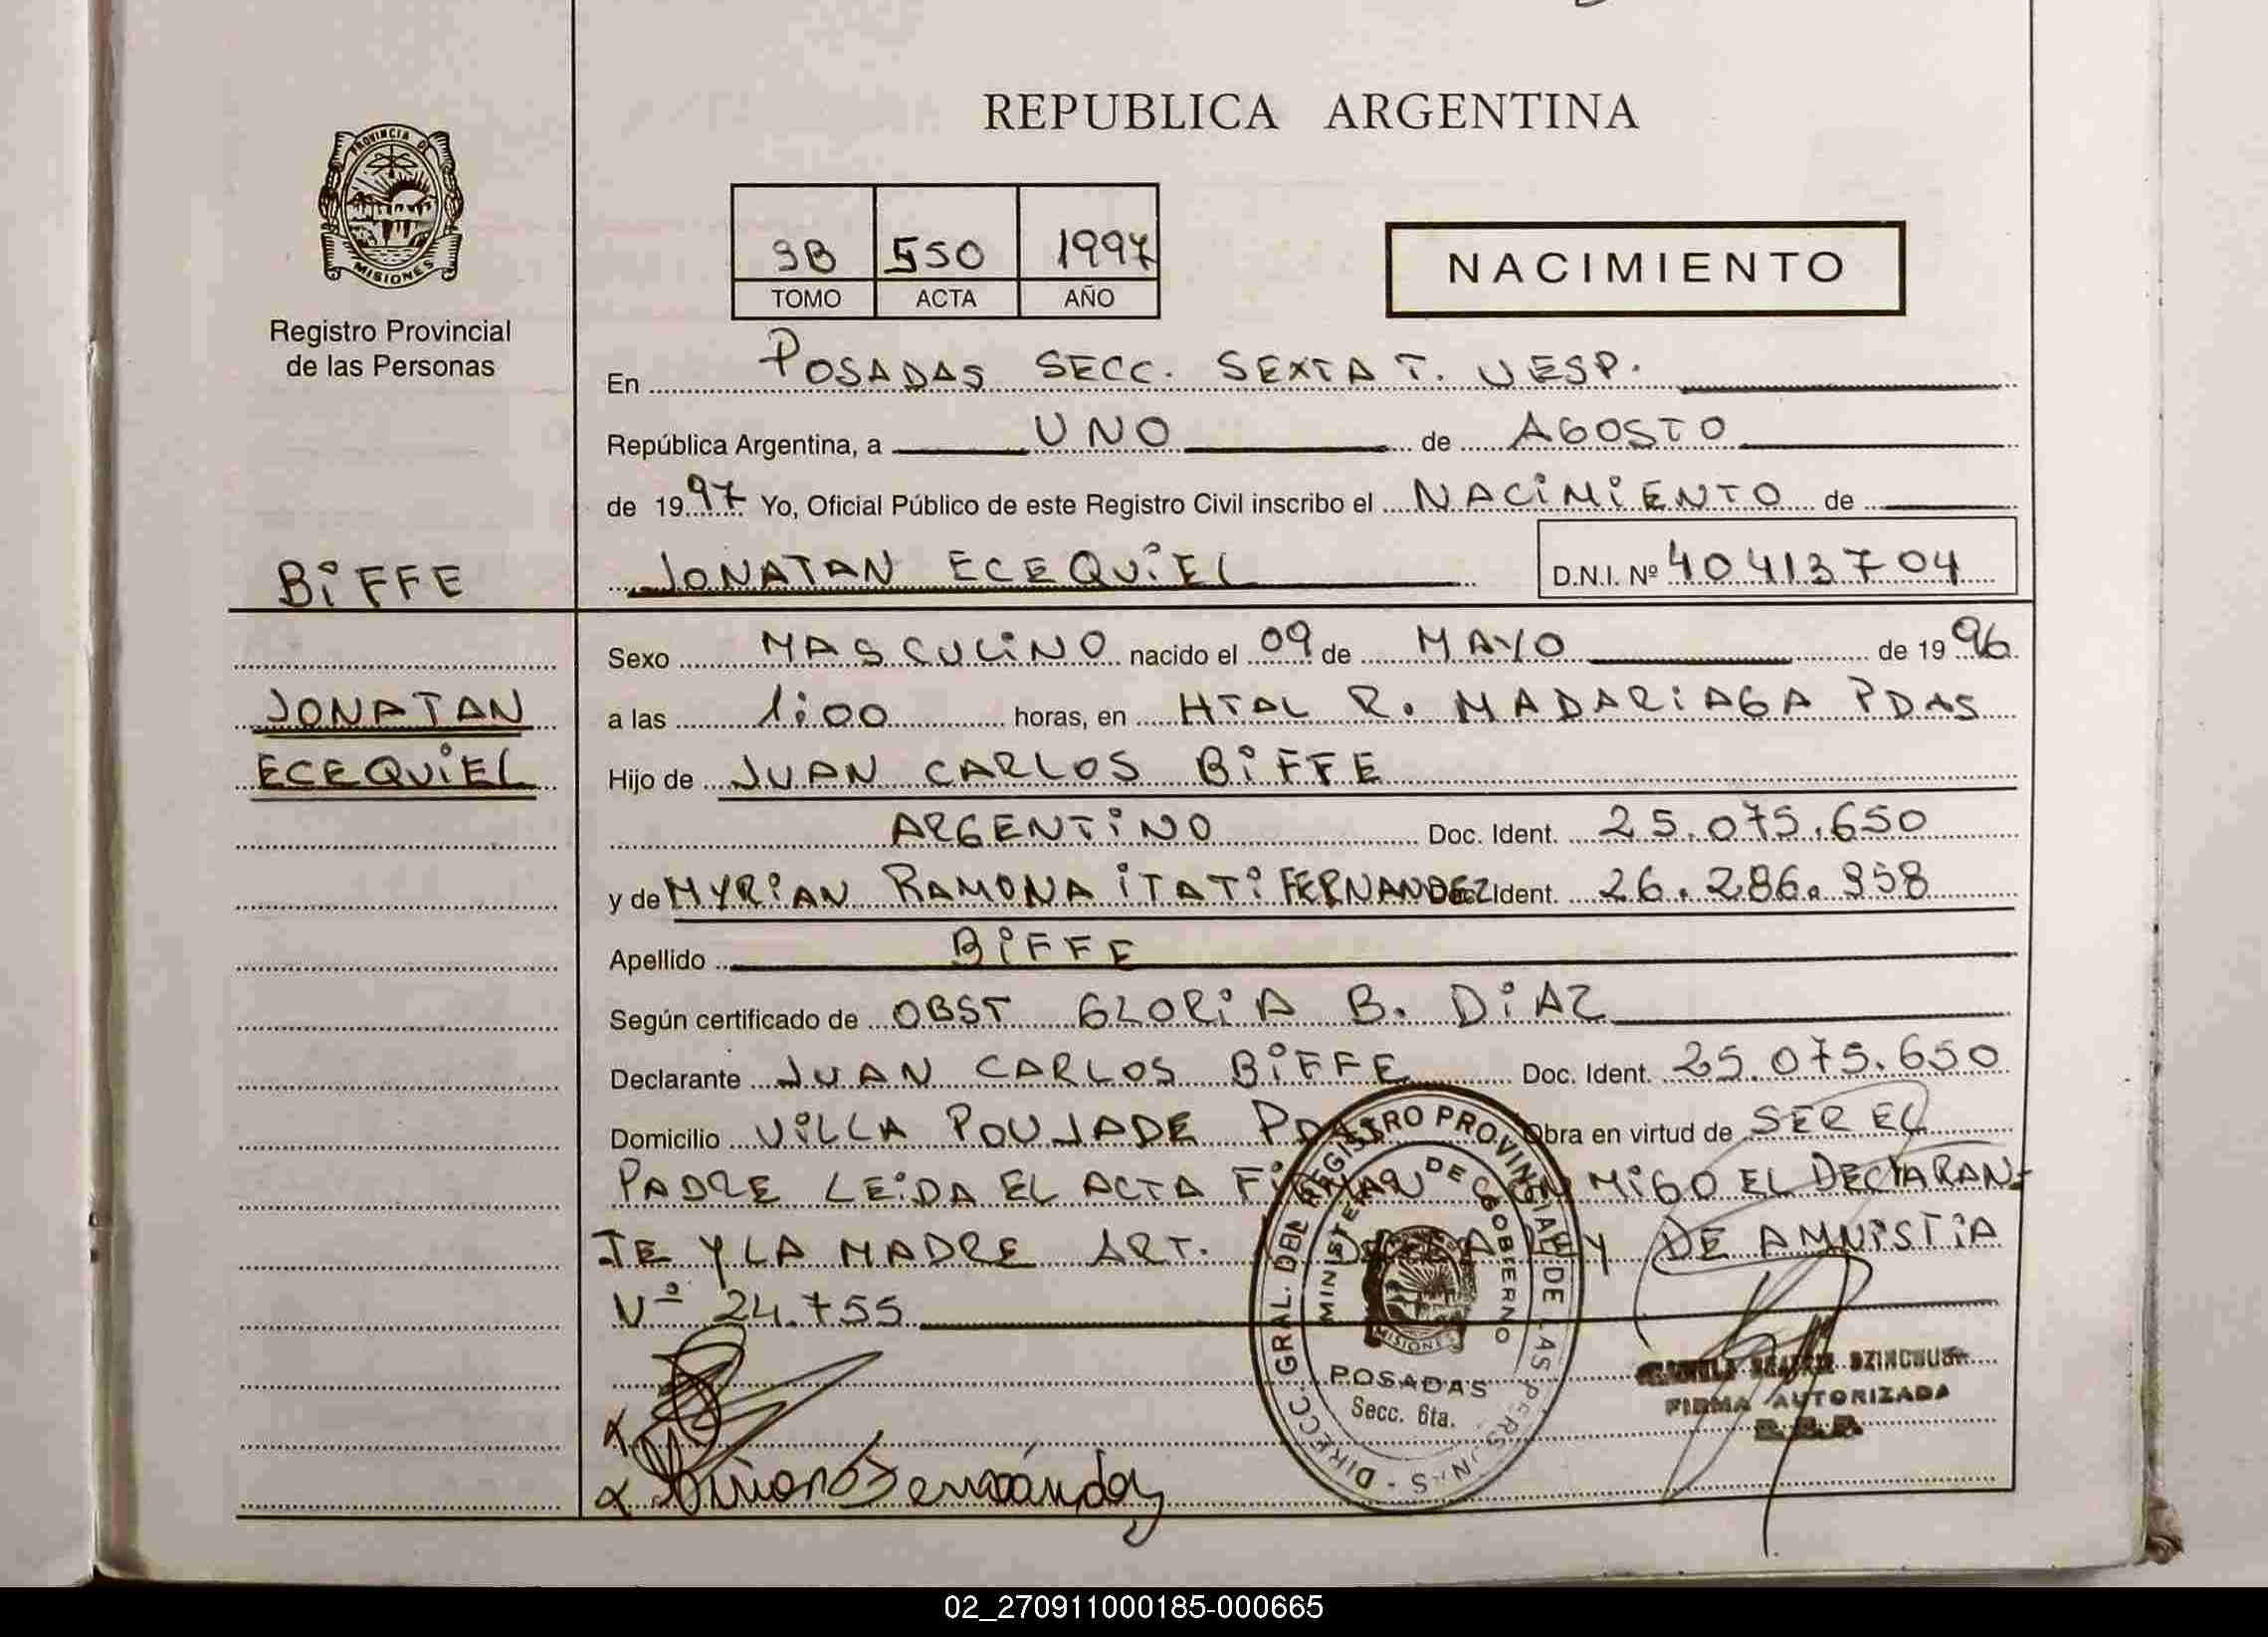 REPUBLICA ARGENTINA
PROVINCIA DE
MISIONES
Registro Provincial
de las Personas
3B 550 1997
TOMO ACTA AÑO
NACIMIENTO
En POSADAS SECC. SEXTA T. VESP.
República Argentina, a UNO de AGOSTO
de 1997 Yo, Oficial Público de este Registro Civil inscribo el NACIMIENTO de
BIFFE
JONATAN ECEQUIEL D.N.I. Nº 40413704
Sexo MASCULINO nacido el 09 de MAYO de 1996
JONATAN
a las 1:00 horas, en HTAL R. MADARIAGA PDAS
ECEQUIEL
Hijo de JUAN CARLOS BIFFE
ARGENTINO Doc. Ident. 25.075.650
y de MYRIAN RAMONA ITATI FERNANDEZ Doc. Ident. 26.286.958
Apellido BIFFE
Según certificado de OBST GLORIA B. DIAZ
Declarante JUAN CARLOS BIFFE Doc. Ident. 25.075.650
Domicilio VILLA POUJADE PDAS Obra en virtud de SER EL
PADRE LEIDA EL ACTA FIRMAN CONMIGO EL DECLARAN-
TE Y LA MADRE ART. DE LA LEY DE AMNISTIA
Nº 24.755
DIRECC. GRAL. DEL REGISTRO PROVINCIAL DE LAS PERSONAS
MINISTERIO DE GOBIERNO
MISIONES
POSADAS
Secc. 6ta.
FIRMA AUTORIZADA
Fernández
02_270911000185-000665